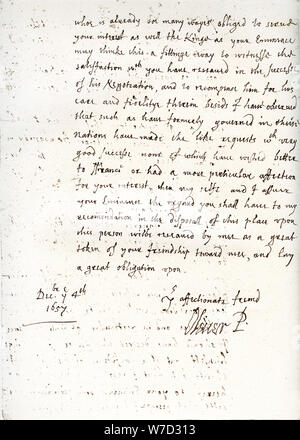 who is already so many wayes obliged to
your interest as well the Kings as your Eminence
may thinke this a fittinge way to witnesse the
satisfaction wch you have receaved in the successe
of his Negotiation, and to recompense him for his
care and fidelitye therein besids I have observed
that such as have formerly governed in these
nations have made the like requests wth very
good successe none of which have wished better
to France or had a more perticuler affection
for your interest, then my selfe and I assure
your Eminence the regard you shall have to my
recomendation in the disposall of this place upon
this person wilbe receaved by mee as a great
token of your friendship toward mee, and lay
a great obligation upon
Decbre ye 4th
1657
Yr affectionate freind
Oliver P.
alamy
alamy stock photo
W7D313
www.alamy.com